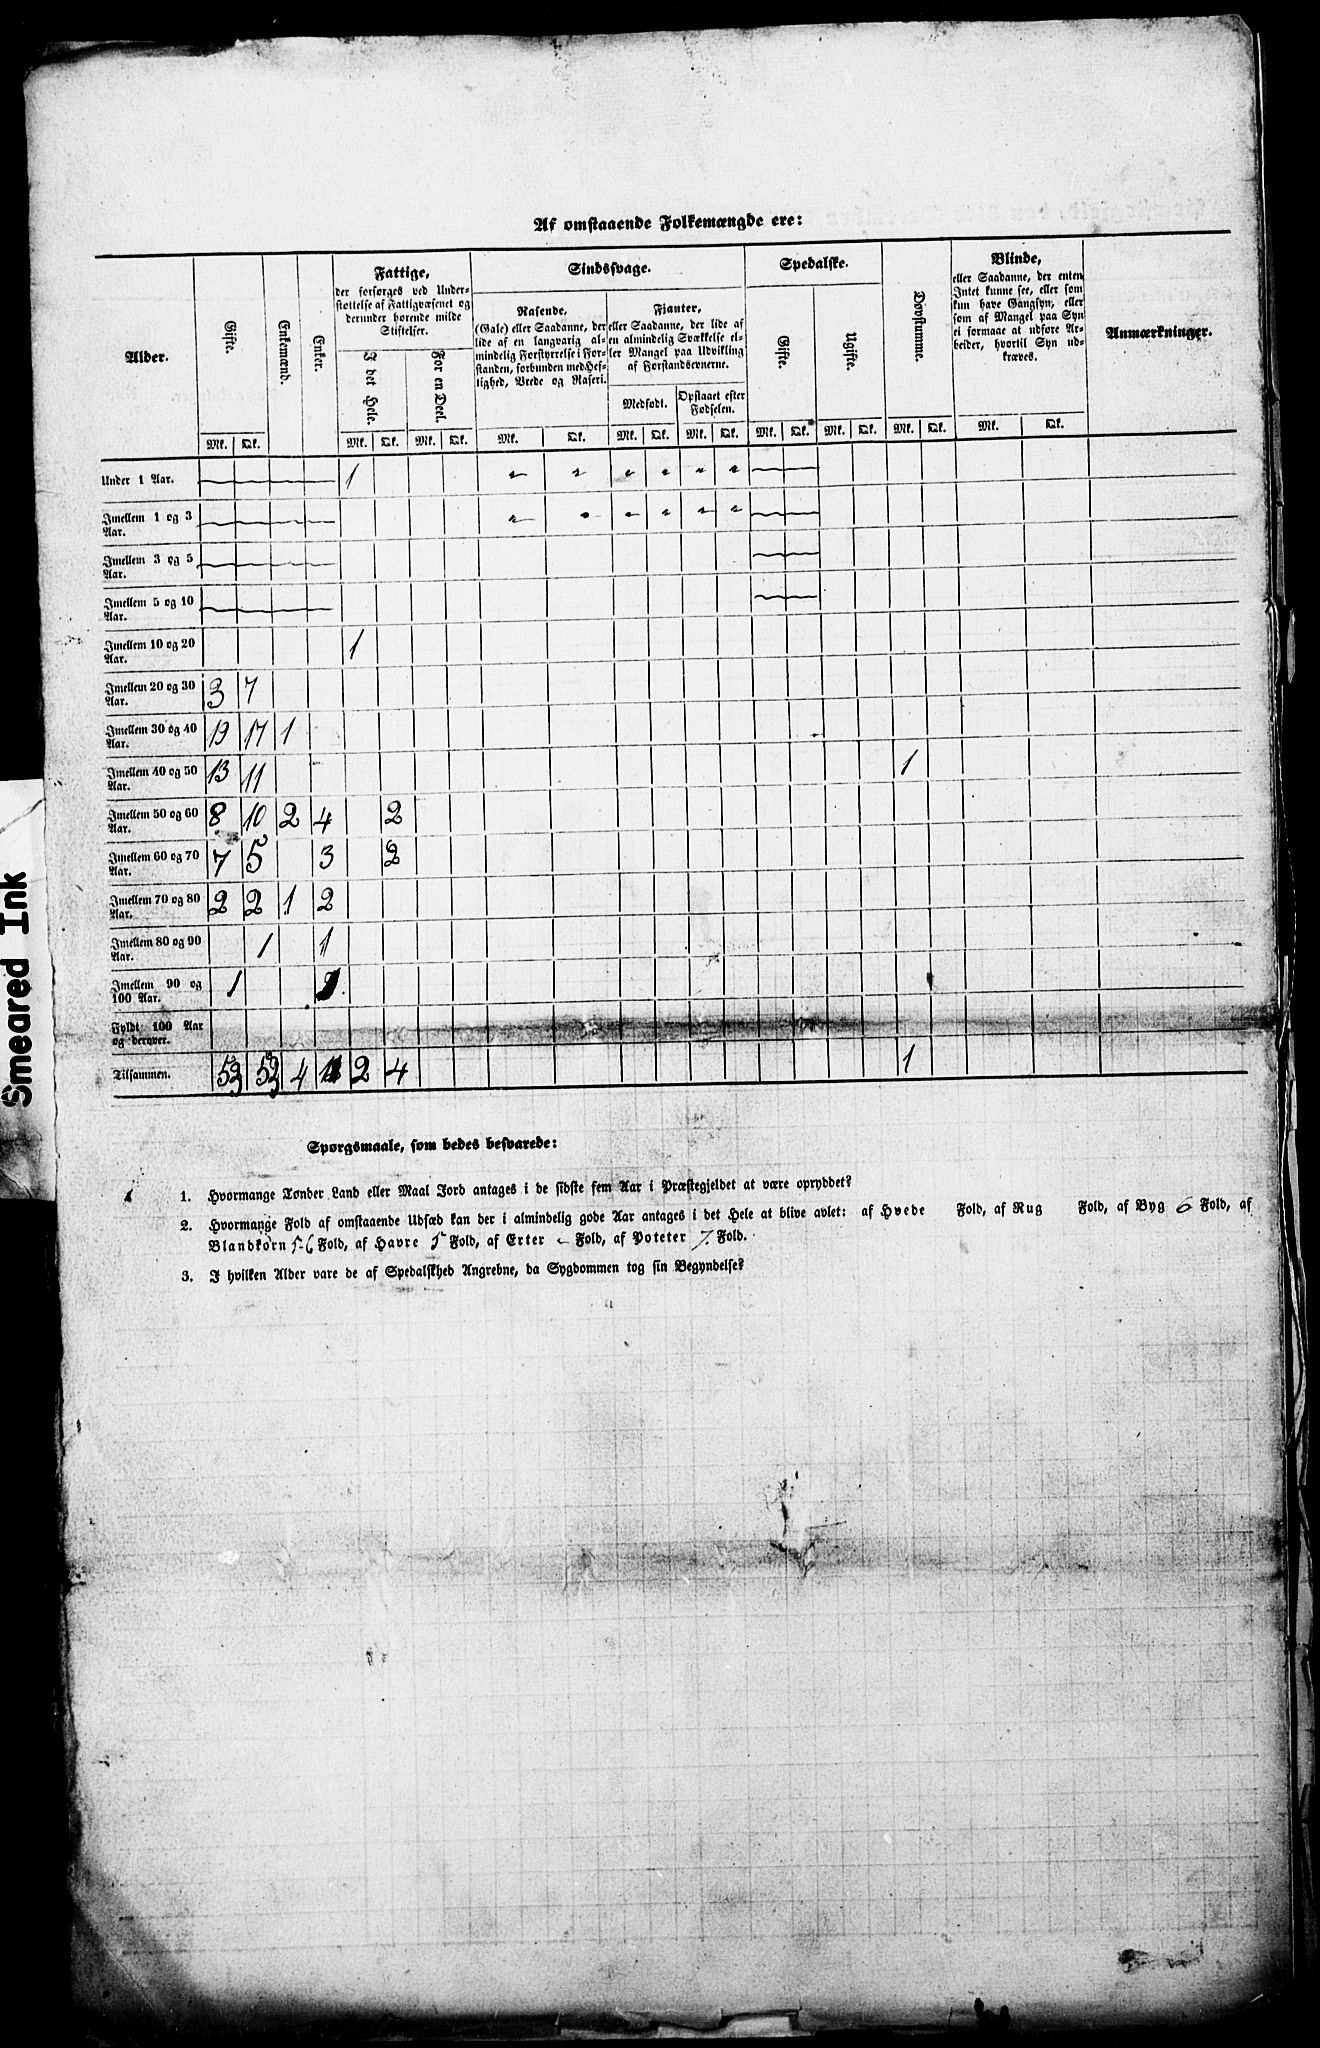 Af omstaaende Folkemængde ere:
Alder.
Gifte.
Enkemænd.
Enker.
Fattige,
der forsørges ved Under-
støttelse af Fattigvæsenet og
derunder hørende milde
Stiftelser.
I det Hele.
For en Deel.
Sindssvage.
Rasende.
(Gale) eller Saadanne, der
lide af en langvarig al-
mindelig Forstyrrelse i For-
standen, forbunden med Hef-
tighed, Vrede og Raseri.
Fianter,
eller Saadanne, der lide af
en almindelig Svækkelse el-
ler Mangel paa Udvikling
af Forstandsevnerne.
Medfødt.
Opstaaet efter
Fødselen.
Spedalske.
Gifte.
Ugifte.
Døvstumme.
Blinde,
eller Saadanne, der enten
Intet kunne see, eller som
kun have Gangsyn, eller
som af Mangel paa Syn
ei formaae at udføre Ar-
beider, hvortil Syn ud-
kræves.
Anmærkninger.
Mk. Qk. Mk. Qk. Mk. Qk. Mk. Qk. Mk. Qk. Mk. Qk. Mk. Qk. Mk. Qk. Mk. Qk. Mk. Qk.
Under 1 Aar. 1
Imellem 1 og 3
Aar.
Imellem 3 og 5
Aar.
Imellem 5 og 10
Aar.
Imellem 10 og 20 1
Aar.
Imellem 20 og 30 3 7
Aar.
Imellem 30 og 40 19 17 1
Aar.
Imellem 40 og 50 13 11 1
Aar.
Imellem 50 og 60 8 10 2 4 2
Aar.
Imellem 60 og 70 7 5 3 2
Aar.
Imellem 70 og 80 2 2 1 2
Aar.
Imellem 80 og 90 1 1
Aar.
Imellem 90 og 1
100 Aar.
Fyldt 100 Aar
og derover.
Tilsammen. 53 53 4 2 4 1
Smeared Ink
Spørgsmaale, som bedes besvarede:
1. Hvormange Tønder Land eller Maal Jord antages i de sidste fem Aar i Præstegjeldet at være opryddet?
2. Hvormange Fold af omstaaende Udsæd kan der i almindelig gode Aar antages i det Hele at blive avlet: af Hvede Fold, af Rug Fold, af Byg 6 Fold, af
Blandkorn 5-6 Fold, af Havre 5 Fold, af Erter - Fold, af Poteter 7. Fold.
3. I hvilken Alder vare de af Spedalskhed Angrebne, da Sygdommen tog sin Begyndelse?